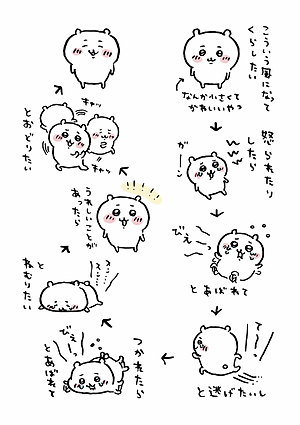 こういう風になって
くらしたい
なんか小さくて
かわいいやつ
怒られたり
したら
ガーン
びえーっ
とあばれて
てーっ
と逃げたいし
つかれたら
びえーっ
とあばれて
スー…
スー…
と
ねむりたい
うれしいことが
あったら
キャッ
キャッ
とおどりたい